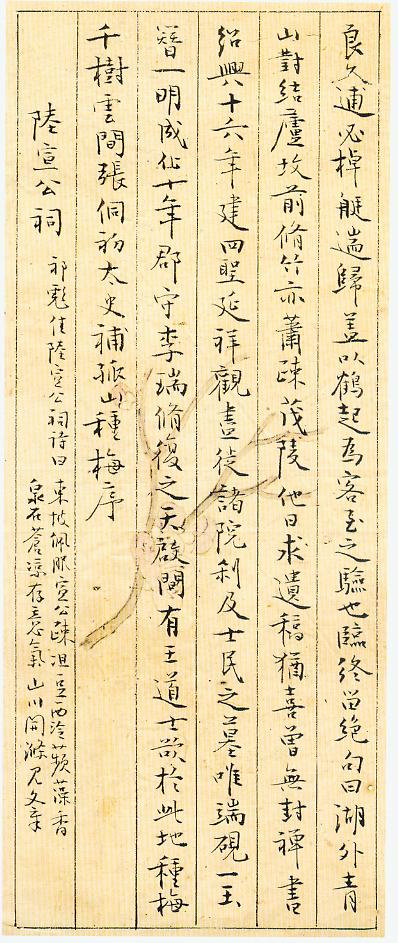 良久逋必棹艇遄歸蓋以鶴起為客至之驗也臨終留絕句曰湖外青
山對結廬坟前脩竹亦蕭疎茂陵他日求遺稿猶喜曾無封禪書
紹興十六年建四聖延祥觀盡徙諸院刹及士民之墓唯端硯一玉
簪一明成化十年郡守李瑞脩復之天啟間有王道士欲於此地種梅
千樹雲間張侗初太史補孤山種梅序
陸宣公祠 祁彪佳陸宣公祠詩曰
東坡佩服宣公疏俎豆西泠蘋藻香
泉石蒼涼存意氣山川開滌見文章